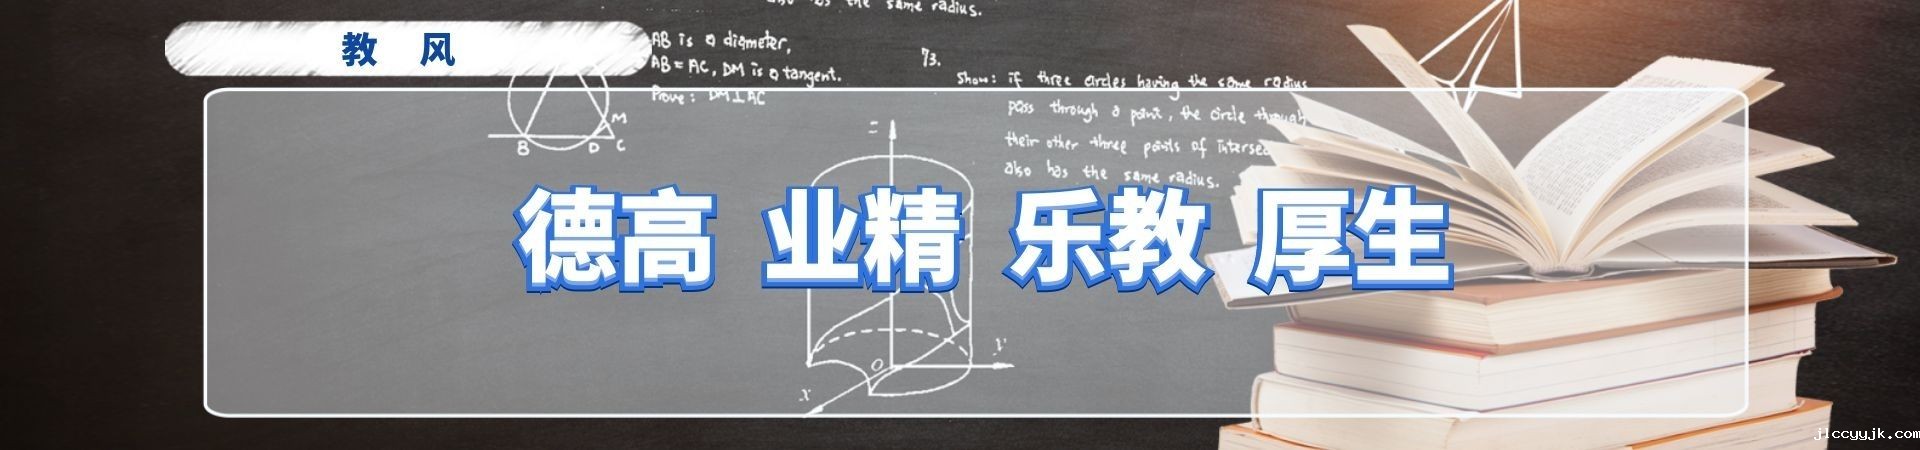 also has the same radius.
教 风
AB is a diameter,
AB = AC, DM is a tangent.
Prove: DM⊥AC
73.
Show: if three circles having the same radius
pass through a point, the circle through
their other three points of intersec
also has the same radius.
M
B D C
z
德高 业精 乐教 厚生
O
y
x
jlccyyjk.com